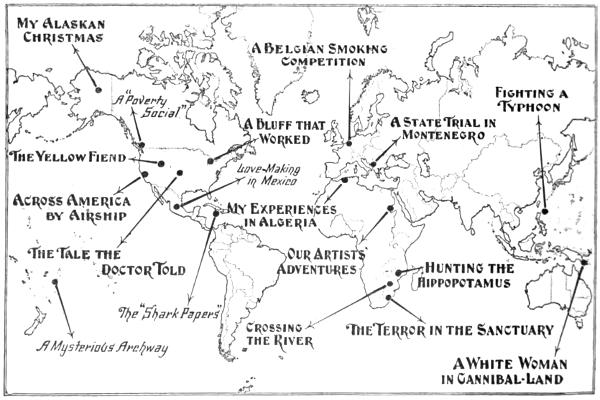 My Alaskan
Christmas
A Belgian Smoking
Competition
Fighting a
Typhoon
A "Poverty
Social"
A Bluff that
Worked
A State Trial in
Montenegro
The Yellow Fiend
Love-Making
in Mexico
Across America
by Airship
My Experiences
in Algeria
The Tale the
Doctor Told
Our Artist's
Adventures
Hunting the
Hippopotamus
The "Shark Papers"
Crossing
the River
The Terror in the Sanctuary
A Mysterious Archway
A White Woman
in Cannibal-Land